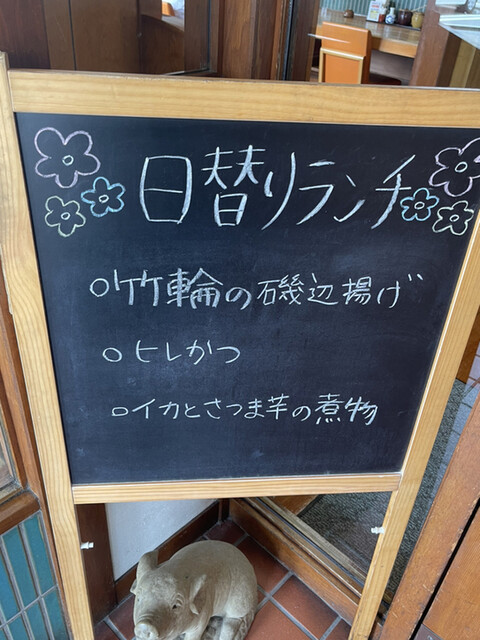 日替りランチ
○竹輪の磯辺揚げ
○ヒレかつ
○イカとさつま芋の煮物